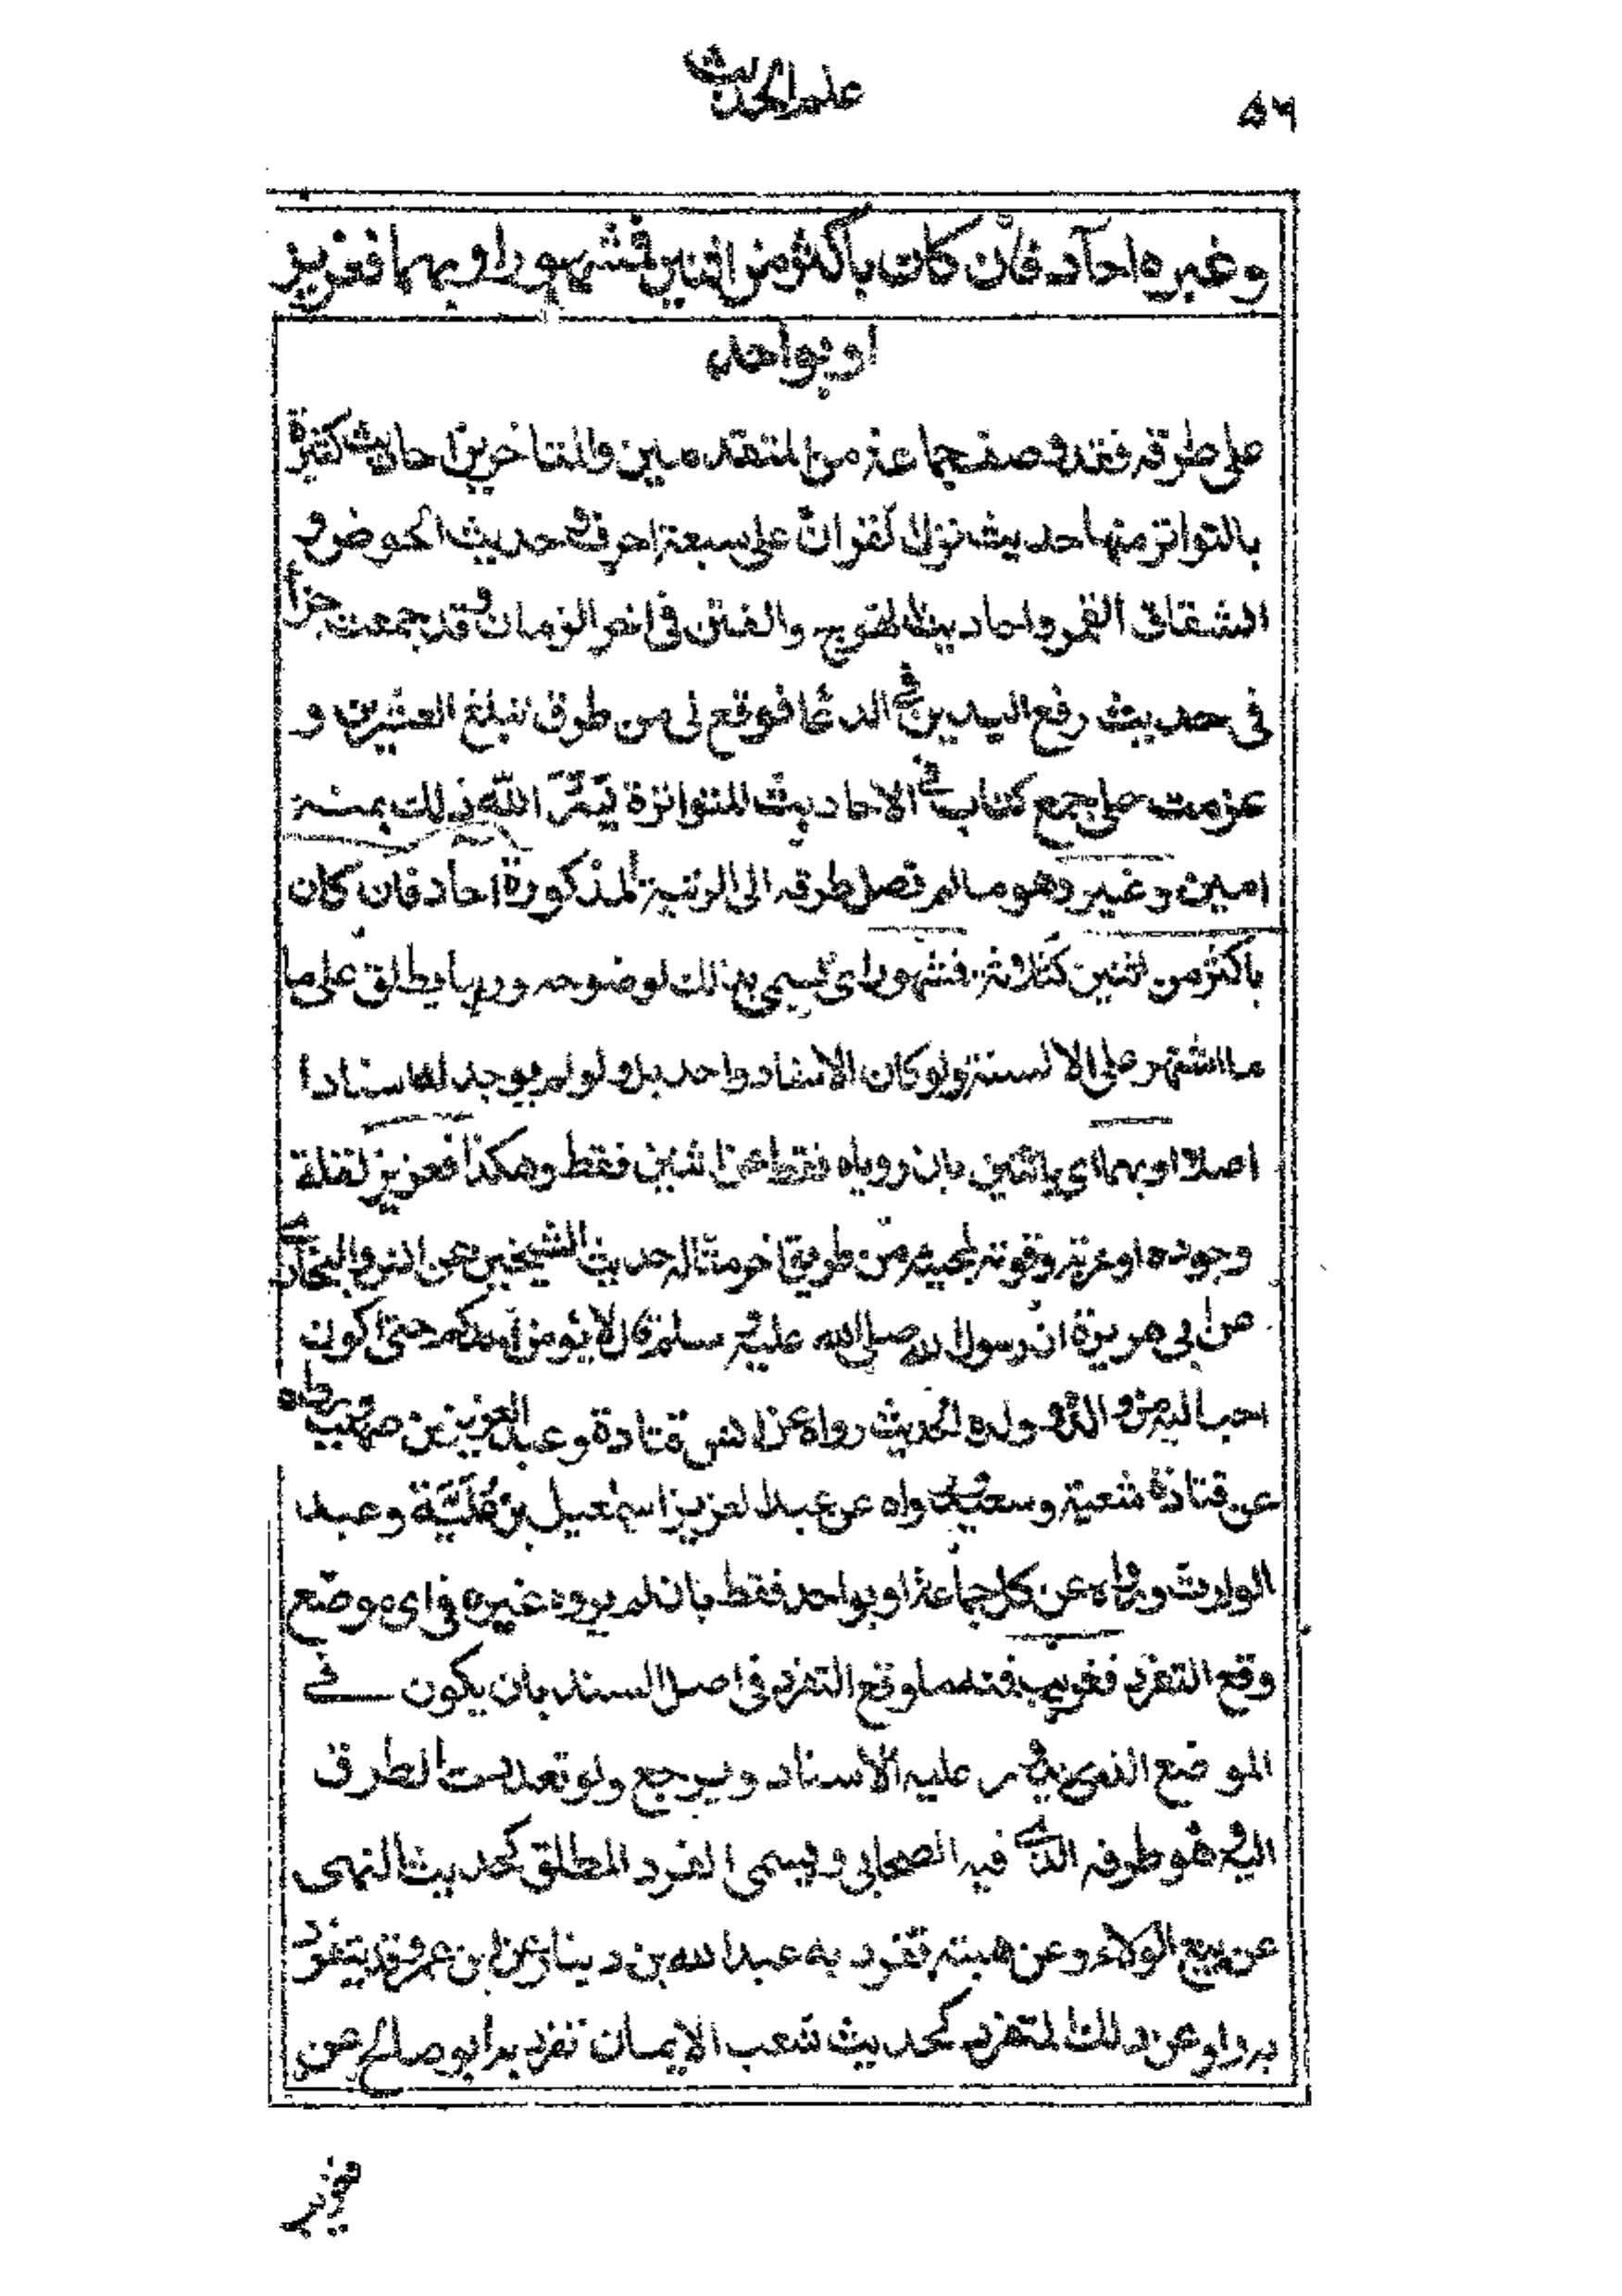 ٥٦
علم الحديث
وغيره احآد فان كان باكثر من اثنين فمشهور او بهما فعزيز
او بواحد
على طرقه فقد وصف جماعة من المتقدمين والمتاخرين احاديث كثيرة
بالتواتر منها حديث نزل القران على سبعة احرف وحديث الحوض و
انشقاق القمر واحاديث الهرج والفتن فى اخر الزمان وقد جمعت جزأ
فى حديث رفع اليدين فى الدعا فوقع لى من طرق تبلغ العشرين و
عزمت على جمع كتاب فى الاحاديث المتواترة يَسَّرَ الله ذلك بمنه
امين وغيره وهو ما لم تصل طرقه الى الرتبة المذكورة احاد فان كان
باكثر من اثنين كثلاثة فمشهور اى يسمى بذلك لوضوحه وربما يطلق على ما
ما اشتهر على الالسنة ولو كان الاسناد واحد بل ولو لم يوجد له اسنادا
اصلا او بهما اى باثنين بان روياه فقط عن اثنين فقط وهكذا فعزيز لقلة
وجوده او عزته وقوته لمجيئه من طريق اخر مثاله حديث الشيخين عن انس والبخارى
عن ابى هريرة ان رسول الله صلى الله عليه وسلم قال لا يؤمن احدكم حتى اكون
احب اليه من والده وولده الحديث رواه عن انس قتادة وعبد العزيز بن صهيب ورواه
عن قتادة شعبة وسعيد ورواه عن عبد العزيز اسمعيل بن عُلَيَّة وعبد
الوارث ورواه عن كل جماعة او بواحد فقط بان لم يروه غيره فى اى موضع
وقع التفرد فغريب فمنه ما وقع التفرد فى اصل السند بان يكون فى
الموضع الذى يدور عليه الاسناد ويرجع ولو تعددت الطرق
اليه وهو طرفه الذى فيه الصحابى ويسمى الفرد المطلق كحديث النهى
عن بيع الولاء وعن هبته تفرد به عبد الله بن دينار عن ابن عمر وقد يتفرد
به راو عن ذلك المتفرد كحديث شعب الايمان تفرد به ابو صالح عن